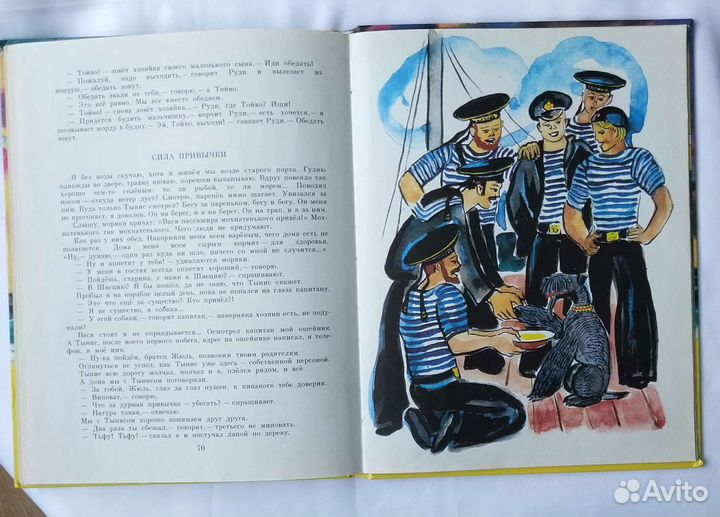 — Тойво! — зовёт хозяйка своего маленького сына. — Иди обедать!
— Пожалуй, надо выходить, — говорит Руди и вылезает из
конуры, — обедать зовут.
— Обедать звали не тебя, — говорю, — а Тойво.
— Это всё равно. Мы все вместе обедаем.
— Тойво! — снова зовёт хозяйка... — Руди, где Тойво? Ищи!
— Придётся будить мальчишку, — ворчит Руди, — есть хочется, — и
засовывает морду в будку. — Эй, Тойво, выходи! — гавкает Руди. — Обедать
зовут.
СИЛА ПРИВЫЧКИ
Я без воды скучаю, хотя и живём мы возле старого порта. Гуляю
однажды во дворе, травку нюхаю, корешки выкапываю. Вдруг повеяло так
хорошо чем-то солёным: то ли рыбой, то ли морем... Поводил
носом — откуда ветер дует? Смотрю, паренёк мимо шагает. Увязался за
ним. Куда только Тынис смотрел? Бегу за пареньком, бегу и бегу. Он меня
не прогоняет, я доволен. Он на берег, и я на берег. Он на трап, и я за ним.
Слышу, моряки кричат: «Вася пассажира мохнатенького привёл!» Мох-
натенького так мохнатенького. Чего люди не придумают.
Как раз у них обед. Накормили меня всем варёным, чего дома есть не
полагается. Дома меня всем сырым кормят — для здоровья.
«Ну, — думаю, — один раз куда ни шло, ничего со мной не случится...»
— Ну и аппетит у тебя! — удивляются моряки.
— У меня в гостях всегда аппетит хороший, — говорю.
— Пойдёшь, старина, с нами в Швецию? — спрашивают.
— В Швецию? Я бы пошёл, да не знаю, что Тынис скажет.
Пробыл я на корабле целый день, пока не попался на глаза капитану.
— Это что ещё за существо? Кто привёз?!
— Я не существо, я собака...
— У этой собаки, — говорит капитан, — наверняка хозяин есть, не поду-
мали?
Вася стоит и не оправдывается... Осмотрел капитан мой ошейник.
А Тынис, после моего первого побега, адрес на ошейнике написал, и теле-
фон, и моё имя.
— Ну-ка пойдём, братец Жюль, позвоним твоим родителям.
Оглянуться не успел, как Тынис уже здесь — собственной персоной.
Тынис всю дорогу молчал, молчал и я, плёлся рядом, и всё.
А дома мы с Тынисом поговорили.
— За тобой, Жюль, глаз да глаз нужен, и никакого тебе доверия.
— Виноват, — говорю.
— Что за дурная привычка — убегать? — спрашивает.
— Натура такая, — отвечаю.
Мы с Тынисом хорошо понимаем друг друга.
— Два раза ты сбежал, — говорит, — третьего не миновать.
— Тьфу! Тьфу! — сказал я и постучал лапой по дереву.
70
Avito